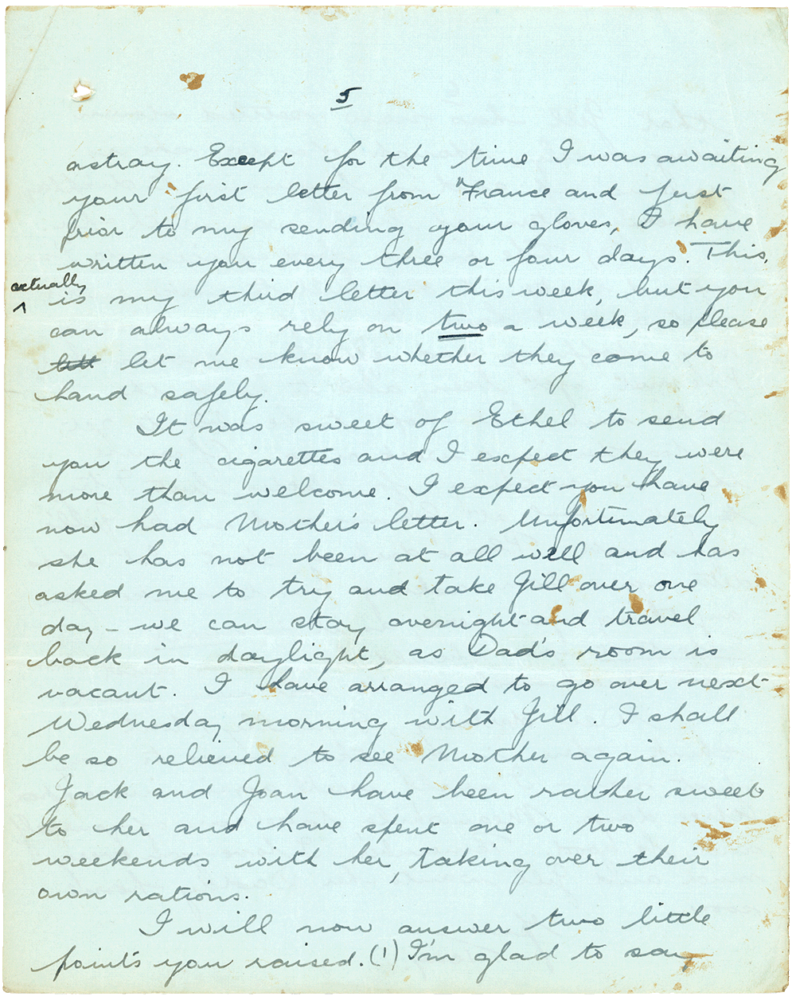 5
astray. Except for the time I was awaiting
your first letter from "France and just
prior to my sending your gloves, I have
written you every three or four days. This,
actually
^ is my third letter this week, but you
can always rely on two a week, so please
let me know whether they come to
hand safely.
It was sweet of Ethel to send
you the cigarettes and I expect they were
more than welcome. I expect you have
now had Mother's letter. Unfortunately
she has not been at all well and has
asked me to try and take Jill over one
day - we can stay overnight and travel
back in daylight, as Dad's room is
vacant. I have arranged to go over next
Wednesday morning with Jill. I shall
be so relieved to see Mother again.
Jack and Joan have been rather sweet
to her and have spent one or two
weekends with her, taking over their
own rations.
I will now answer two little
points you raised. (1) I'm glad to say